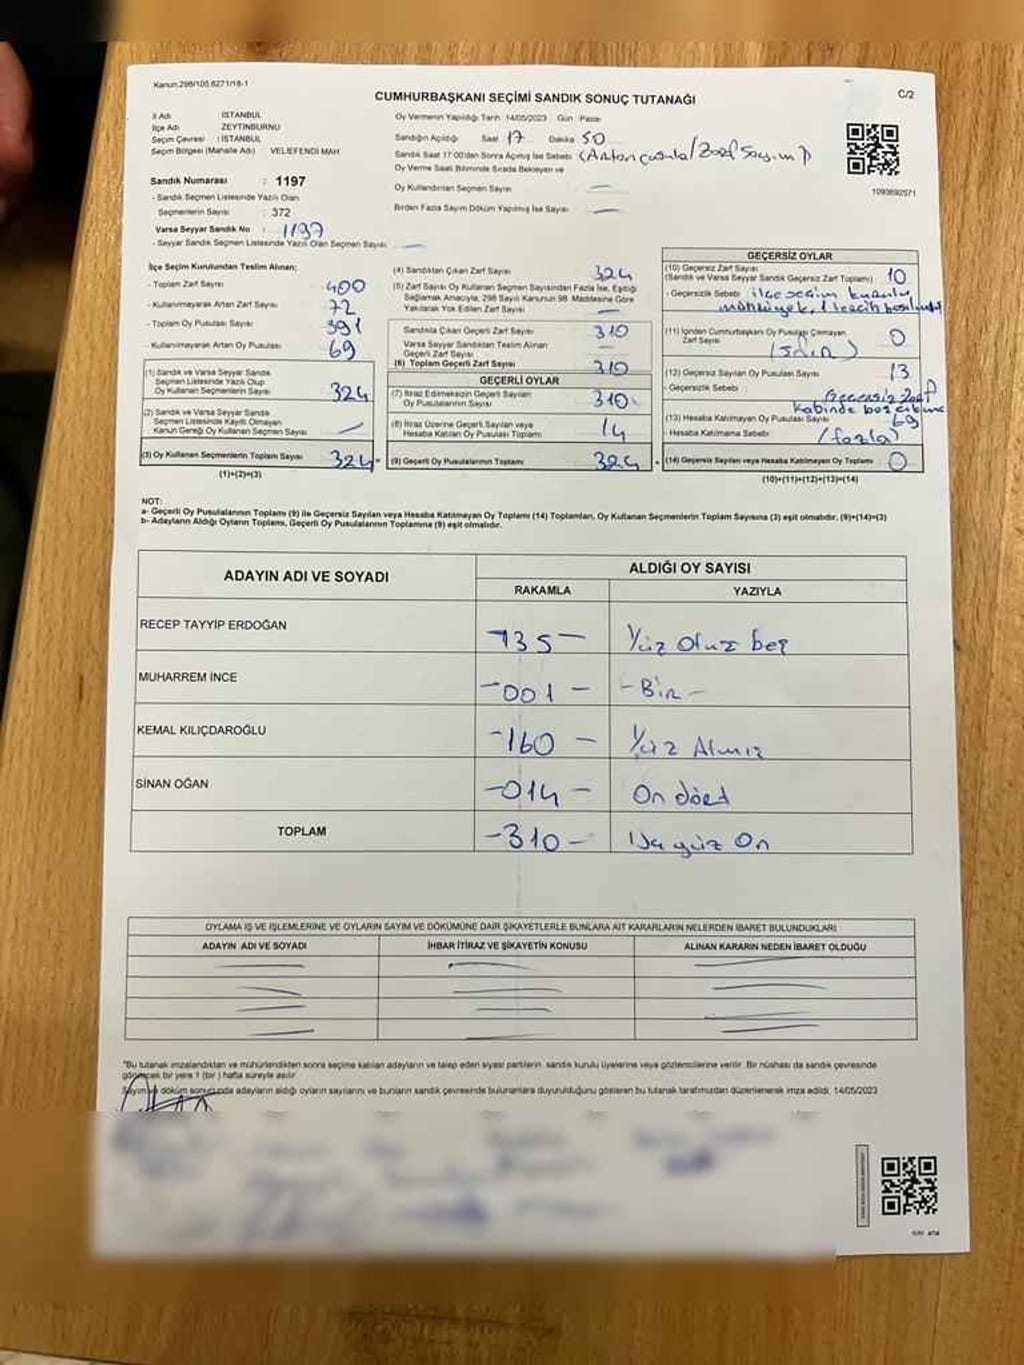 Kanun:298/105,6271/18-1
CUMHURBAŞKANI SEÇİMİ SANDIK SONUÇ TUTANAĞI
C/2
İl Adı İSTANBUL
İlçe Adı ZEYTİNBURNU
Seçim Çevresi : İSTANBUL
Seçim Bölgesi (Mahalle Adı) VELİEFENDİ MAH.
Oy Vermenin Yapıldığı Tarih 14/05/2023 Gün Pazar
Sandığın Açıldığı Saat 17 Dakika 50
Sandık Saat 17:00'den Sonra Açılmış İse Sebebi
Oy Verme Saati Bitiminde Sırada Bekleyen ve
Oy Kullandırılan Seçmen Sayısı —
Birden Fazla Sayım Döküm Yapılmış İse Sayısı —
1093692571
Sandık Numarası : 1197
- Sandık Seçmen Listesinde Yazılı Olan
Seçmenlerin Sayısı : 372
Varsa Seyyar Sandık No : 1197
- Seyyar Sandık Seçmen Listesinde Yazılı Olan Seçmen Sayısı —
İlçe Seçim Kurulundan Teslim Alınan;
- Toplam Zarf Sayısı 400
- Kullanılmayarak Artan Zarf Sayısı 72
- Toplam Oy Pusulası Sayısı 391
- Kullanılmayarak Artan Oy Pusulası 69
(1) Sandık ve Varsa Seyyar Sandık
Seçmen Listesinde Yazılı Olup
Oy Kullanan Seçmenlerin Sayısı 324
(2) Sandık ve Varsa Seyyar Sandık
Seçmen Listesinde Kayıtlı Olmayan
Kanun Gereği Oy Kullanan Seçmen Sayısı —
(3) Oy Kullanan Seçmenlerin Toplam Sayısı 324 =
(1)+(2)=(3)
(4) Sandıktan Çıkan Zarf Sayısı 324
(5) Zarf Sayısı Oy Kullanan Seçmen Sayısından Fazla İse, Eşitliği
Sağlamak Amacıyla, 298 Sayılı Kanunun 98. Maddesine Göre
Yakılarak Yok Edilen Zarf Sayısı —
Sandıkta Çıkan Geçerli Zarf Sayısı 310
Varsa Seyyar Sandıktan Teslim Alınan
Geçerli Zarf Sayısı —
(6) Toplam Geçerli Zarf Sayısı 310
GEÇERLİ OYLAR
(7) İtiraz Edilmeksizin Geçerli Sayılan
Oy Pusulalarının Sayısı 310
(8) İtiraz Üzerine Geçerli Sayılan veya
Hesaba Katılan Oy Pusulası Toplamı 14
(9) Geçerli Oy Pusulalarının Toplamı 324
GEÇERSİZ OYLAR
(10) Geçersiz Zarf Sayısı
(Sandık ve Varsa Seyyar Sandık Geçersiz Zarf Toplamı) 10
- Geçersizlik Sebebi : ilçe seçim kurulu
(11) İçinden Cumhurbaşkanı Oy Pusulası Çıkmayan
Zarf Sayısı 0
(Sıfır)
(12) Geçersiz Sayılan Oy Pusulası Sayısı 13
- Geçersizlik Sebebi : Geçersiz Zarf
(13) Hesaba Katılmayan Oy Pusulası Sayısı 69
- Hesaba Katılmama Sebebi : (fazla)
(14) Geçersiz Sayılan veya Hesaba Katılmayan Oy Toplamı 0
(10)+(11)+(12)+(13)=(14)
NOT:
a- Geçerli Oy Pusulalarının Toplamı (9) ile Geçersiz Sayılan veya Hesaba Katılmayan Oy Toplamı (14) Toplamları, Oy Kullanan Seçmenlerin Toplam Sayısına (3) eşit olmalıdır. (9)+(14)=(3)
b- Adayların Aldığı Oyların Toplamı, Geçerli Oy Pusulalarının Toplamına (9) eşit olmalıdır.
ADAYIN ADI VE SOYADI ALDIĞI OY SAYISI
RAKAMLA YAZIYLA
RECEP TAYYİP ERDOĞAN 135 — Yüz Otuz beş
MUHARREM İNCE — 001 — - Bir -
KEMAL KILIÇDAROĞLU — 160 — Yüz Atmız
SİNAN OĞAN — 014 — On dört
TOPLAM — 310 — yüz On
OYLAMA İŞ VE İŞLEMLERİNE VE OYLARIN SAYIM VE DÖKÜMÜNE DAİR ŞİKAYETLERLE BUNLARA AİT KARARLARIN NELERDEN İBARET BULUNDUKLARI
ADAYIN ADI VE SOYADI İHBAR İTİRAZ VE ŞİKAYETİN KONUSU ALINAN KARARIN NEDEN İBARET OLDUĞU
*Bu tutanak imzalandıktan ve mühürlendikten sonra seçime katılan adayların ve talep eden siyasi partilerin, sandık kurulu üyelerine veya gözlemcilerine verilir. Bir nüshası da sandık çevresinde
görülecek bir yere 1 (bir) hafta süreyle asılır.
Sayım ve döküm sonucunda adayların aldığı oyların sayılarını ve bunların sandık çevresinde bulunanlara duyurulduğunu gösteren bu tutanak tarafımızdan düzenlenerek imza edildi. 14/05/2023